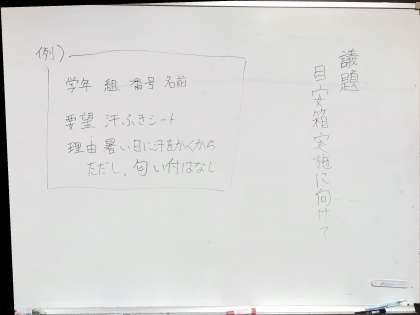 議題
目安箱実施に向けて
例)
学年 組 番号 名前
要望 汗ふきシート
理由 暑い日に汗をかくから
ただし、匂い付はなし